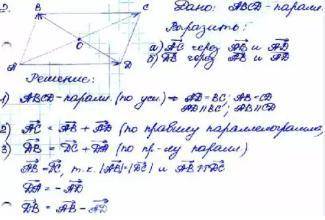 2.
B C
Дано: ABCD - парал.
Выразить:
O
а) AC через AB и AD
A D
б) DB через AB и AD
Решение:
1) ABCD - парал. (по усл) → AD = BC; AB = CD
AD || BC; AB || CD
2) AC = AB + AD (по правилу параллелограмма)
3) DB = DC + DA (по пр-лу парал)
AB = DC, т.к. |AB| = |DC| и AB ↑↑ DC
DA = -AD
DB = AB - AD